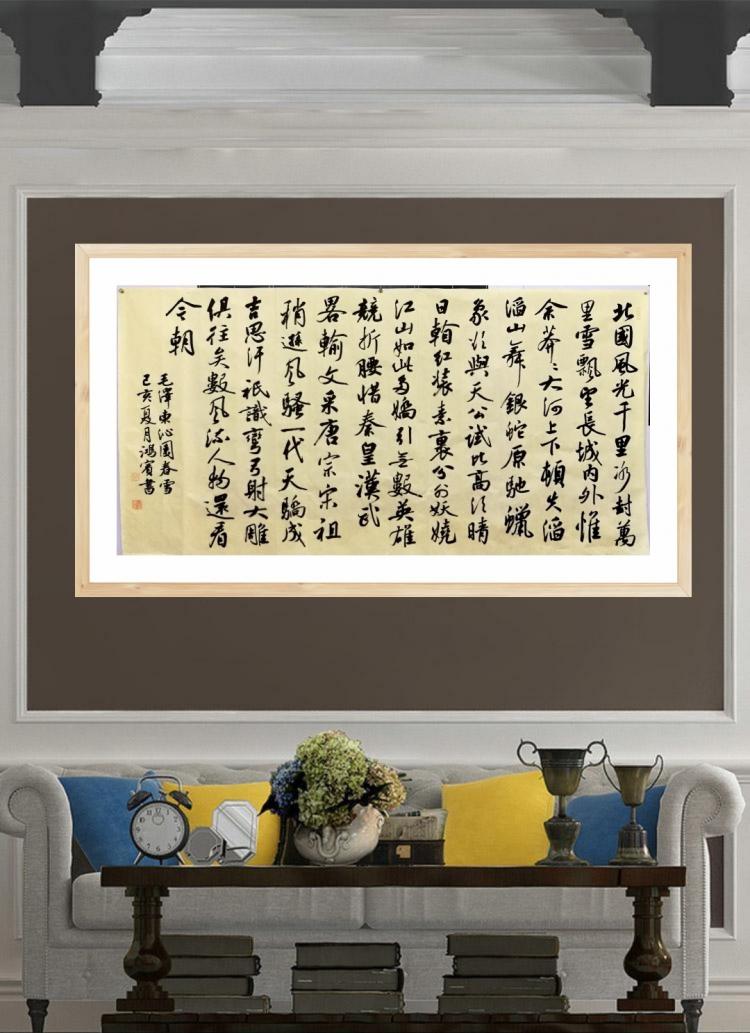 北國風光千里冰封萬
里雪飄望長城内外惟
余莽〻大河上下頓失滔
滔山舞銀蛇原馳蠟
象欲與天公試比高須晴
日看红装素裹分外妖嬈
江山如此多嬌引無數英雄
競折腰惜秦皇漢武
畧輸文采唐宗宋祖
稍遜風騷一代天驕成
吉思汗祇識彎弓射大雕
俱往矣數風流人物還看
今朝
毛澤東沁園春雪
己亥夏月鴻賓書